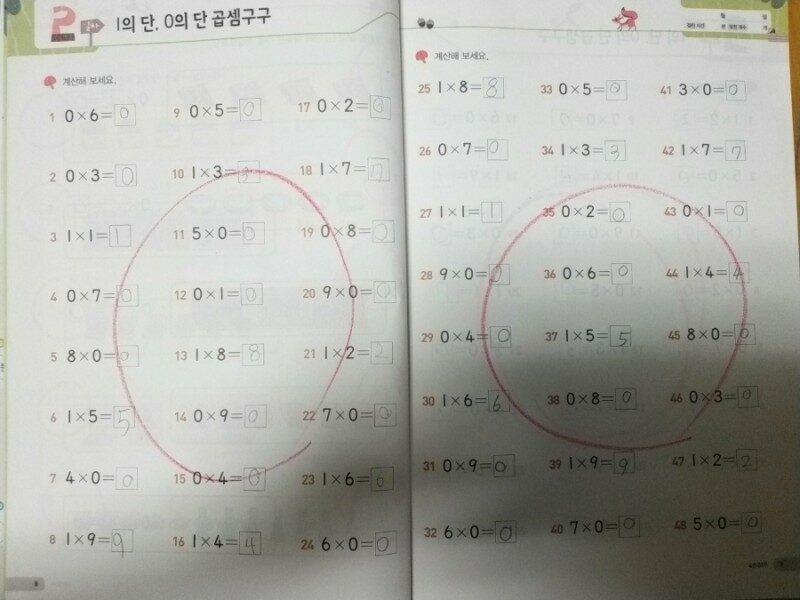 2
1의 단, 0의 단 곱셈구구
계산해 보세요.
1 0×6=0
2 0×3=0
3 1×1=1
4 0×7=0
5 8×0=0
6 1×5=5
7 4×0=0
8 1×9=9
9 0×5=0
10 1×3=3
11 5×0=0
12 0×1=0
13 1×8=8
14 0×9=0
15 0×4=0
16 1×4=4
17 0×2=0
18 1×7=7
19 0×8=0
20 9×0=0
21 1×2=2
22 7×0=0
23 1×6=6
24 6×0=0
8
월 일
계산해 보세요.
25 1×8=8
26 0×7=0
27 1×1=1
28 9×0=0
29 0×4=0
30 1×6=6
31 0×9=0
32 6×0=0
33 0×5=0
34 1×3=3
35 0×2=0
36 0×6=0
37 1×5=5
38 0×8=0
39 1×9=9
40 7×0=0
41 3×0=0
42 1×7=7
43 0×1=0
44 1×4=4
45 8×0=0
46 0×3=0
47 1×2=2
48 5×0=0